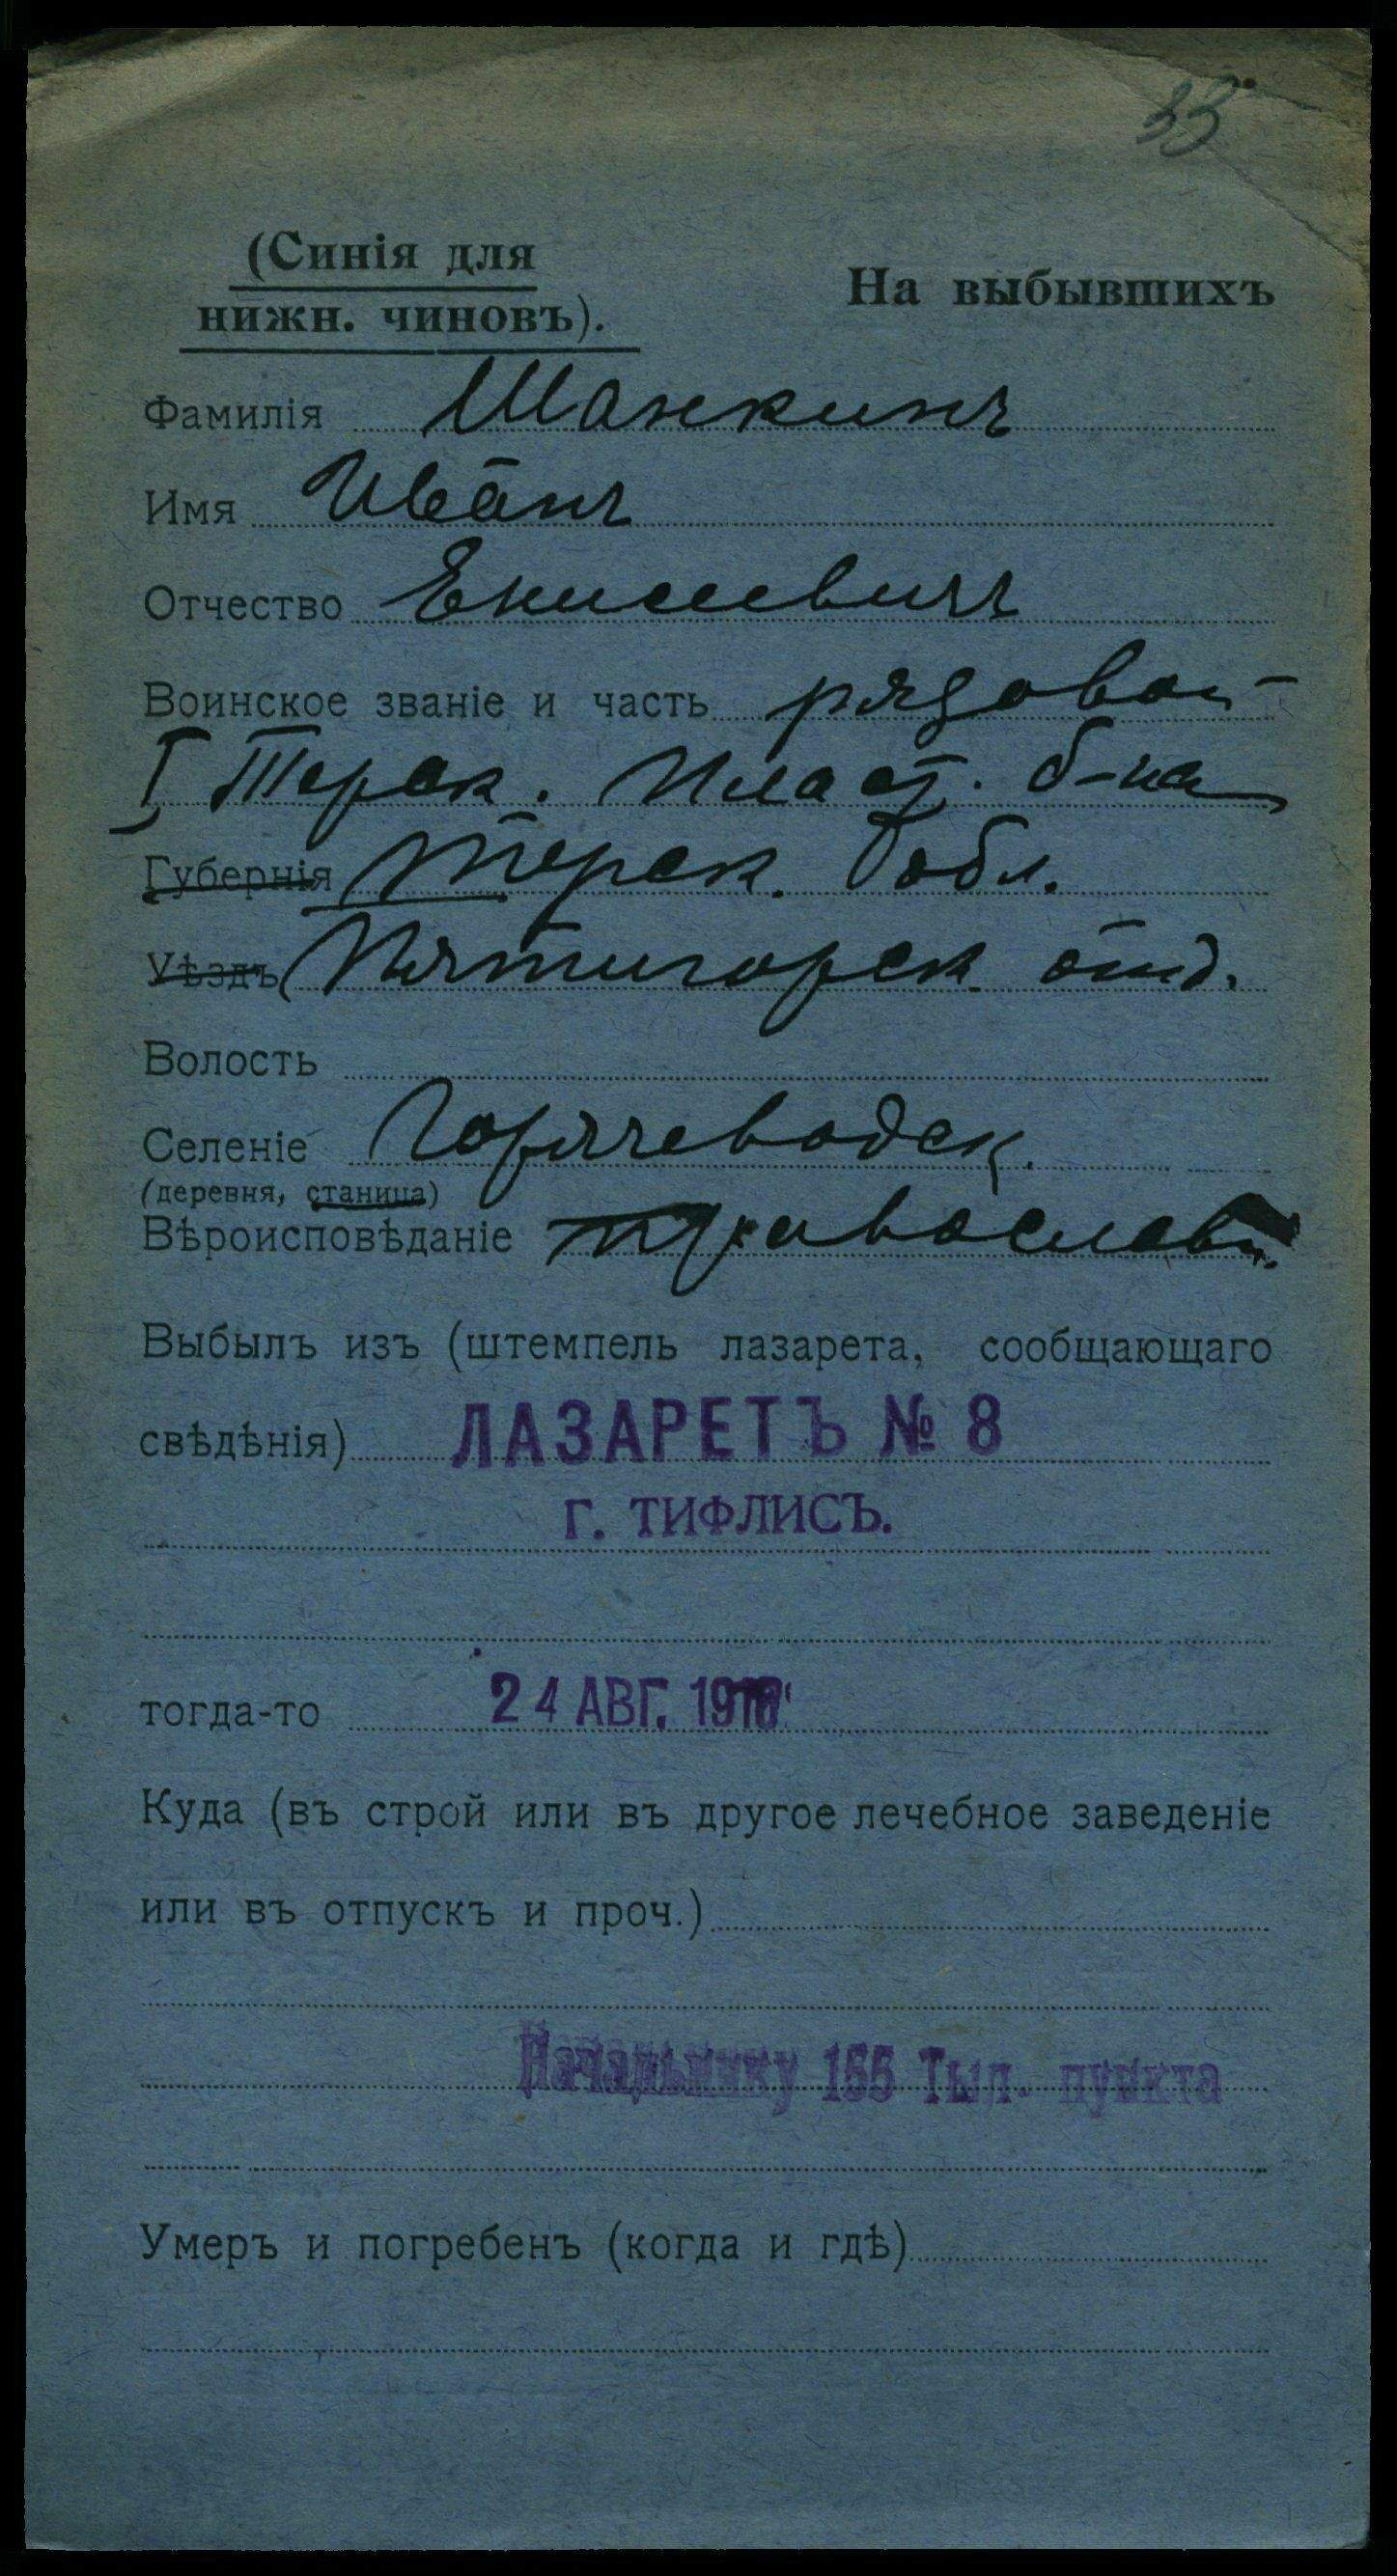 33
(Синія для
нижн. чиновъ).
На выбывшихъ
Фамилія Шанкинъ
Имя Иванъ
Отчество Енисеевичъ
Воинское званіе и часть рядовой
I Терск. Пласт. б-на
Губернія Терск. обл.
Уѣздъ Пятигорск. отд.
Волость
Селеніе Горячеводск.
(деревня, станица)
Вѣроисповѣданіе православн.
Выбылъ изъ (штемпель лазарета, сообщающаго
свѣдѣнія) ЛАЗАРЕТЪ № 8
Г. ТИФЛИСЪ.
тогда-то 24 АВГ. 1916
Куда (въ строй или въ другое лечебное заведеніе
или въ отпускъ и проч.)
Начальнику 155 Тыл. пункта
Умеръ и погребенъ (когда и гдѣ)